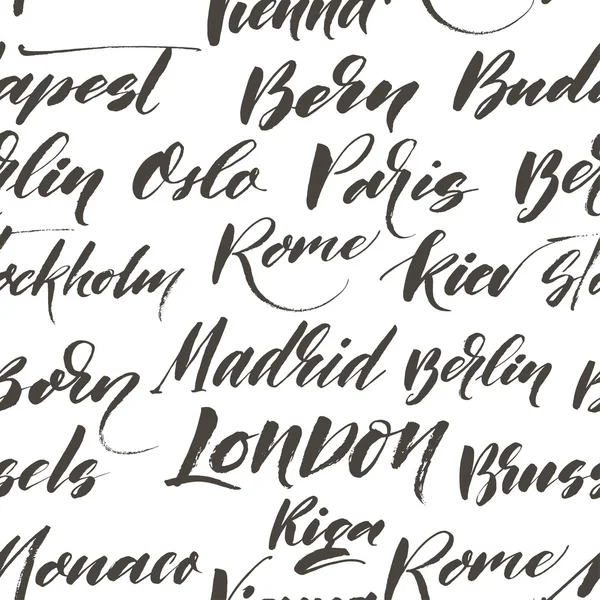 Vienna
apest Bern Buda
rlin Oslo Paris Ber
tockholm Rome Kiev Sto
Born Madrid Berlin B
sels LONDON Bruss
Riga
Monaco Vienna Rome